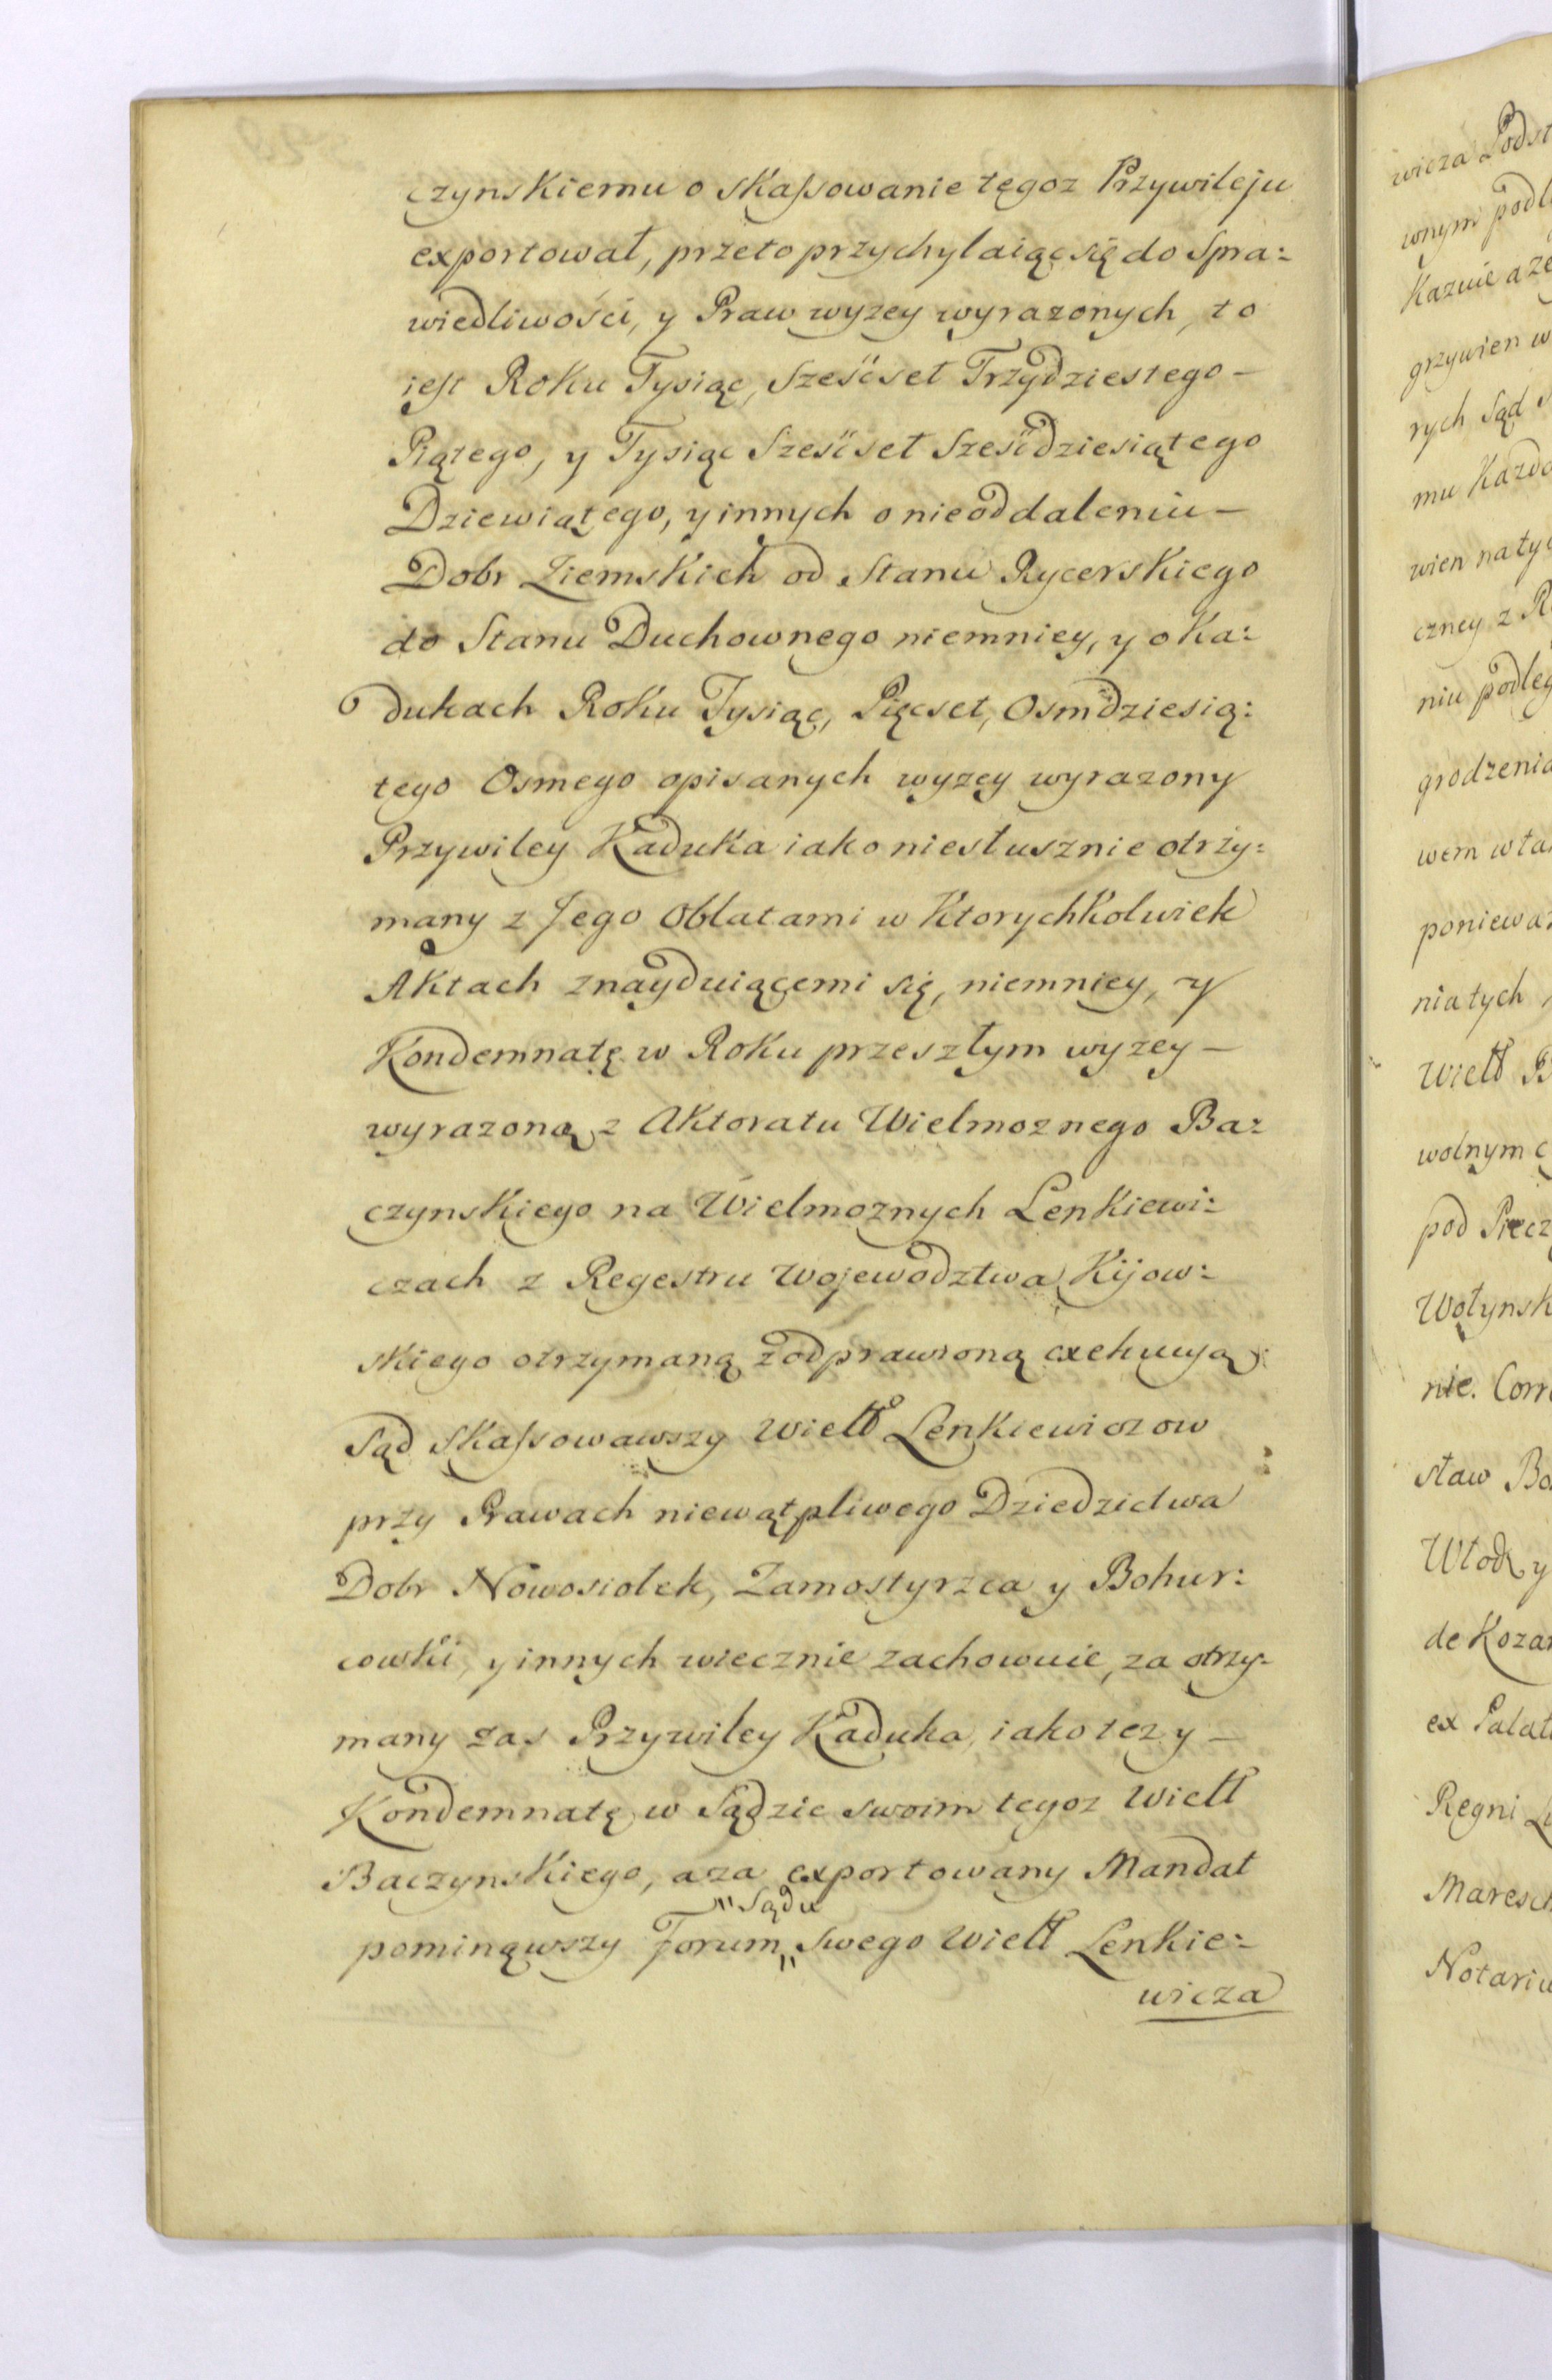 czynskiemu o skaſsowanie tęgoz Przywileju
exportował, przeto przychylaiąc się do Spra:
wiedliwości, y Praw wyzey wyrazonych, to
ieſt Roku Tysiąc, Sześćset Trzydziestego –
Piątego, y Tysiąc Sześćset Sześćdziesiątego
Dziewiątego, y innych o nieoddaleniu –
Dobr Ziemskich od Stanu Rycerskiego
do Stanu Duchownego niemniey, y o Ka:
dukach Roku Tysiąc, Pięcset, Osmdziesią:
tego Osmego opisanych wyzey wyrazony
Przywiley Kaduka iako niesłusznie otrzy:
many z Jego Oblatami w Ktorychkolwiek
Aktach znayduiącemi się, niemniey, y
Kondemnatę w Roku przeszłym wyzey –
wyrazoną z Aktoratu Wielmoznego Ba:
czynskiego na Wielmoznych Lenkiewi:
czach z Regestru Wojewodztwa Kijow:
skiego otrzymaną z odprawioną exekucyą
Sąd skaſsowawszy Wiełł Lenkiewiczow
przy Prawach niewątpliwego Dziedzictwa
Dobr Nowosiolek, Zamostyrzca y Bohur:
cowki, y innych wiecznie zachowuie, za otrzy:
many zas Przywiley Kaduka, iako tez y –
Kondemnatę w Sądzie swoim tegoz Wiełł
Baczynskiego, a za exportowany Mandat
" Sądu
pominąwszy Forum " Swego Wiełł Lenkie:
wicza
wicza Podst
wnym podl
Kazuie a ze
grzywien w
rych Sąd
mu Kazdo
wien na ty
czney z R
niu podleg
grodzenia
wem wła
poniewaz
nia tych
Wiełł B
wolnym
pod Piecz
Wołynsk
nie. Corr
sław Bo
Włodzy
de Kozar
ex Palat
Regni
Maresch
Notariu